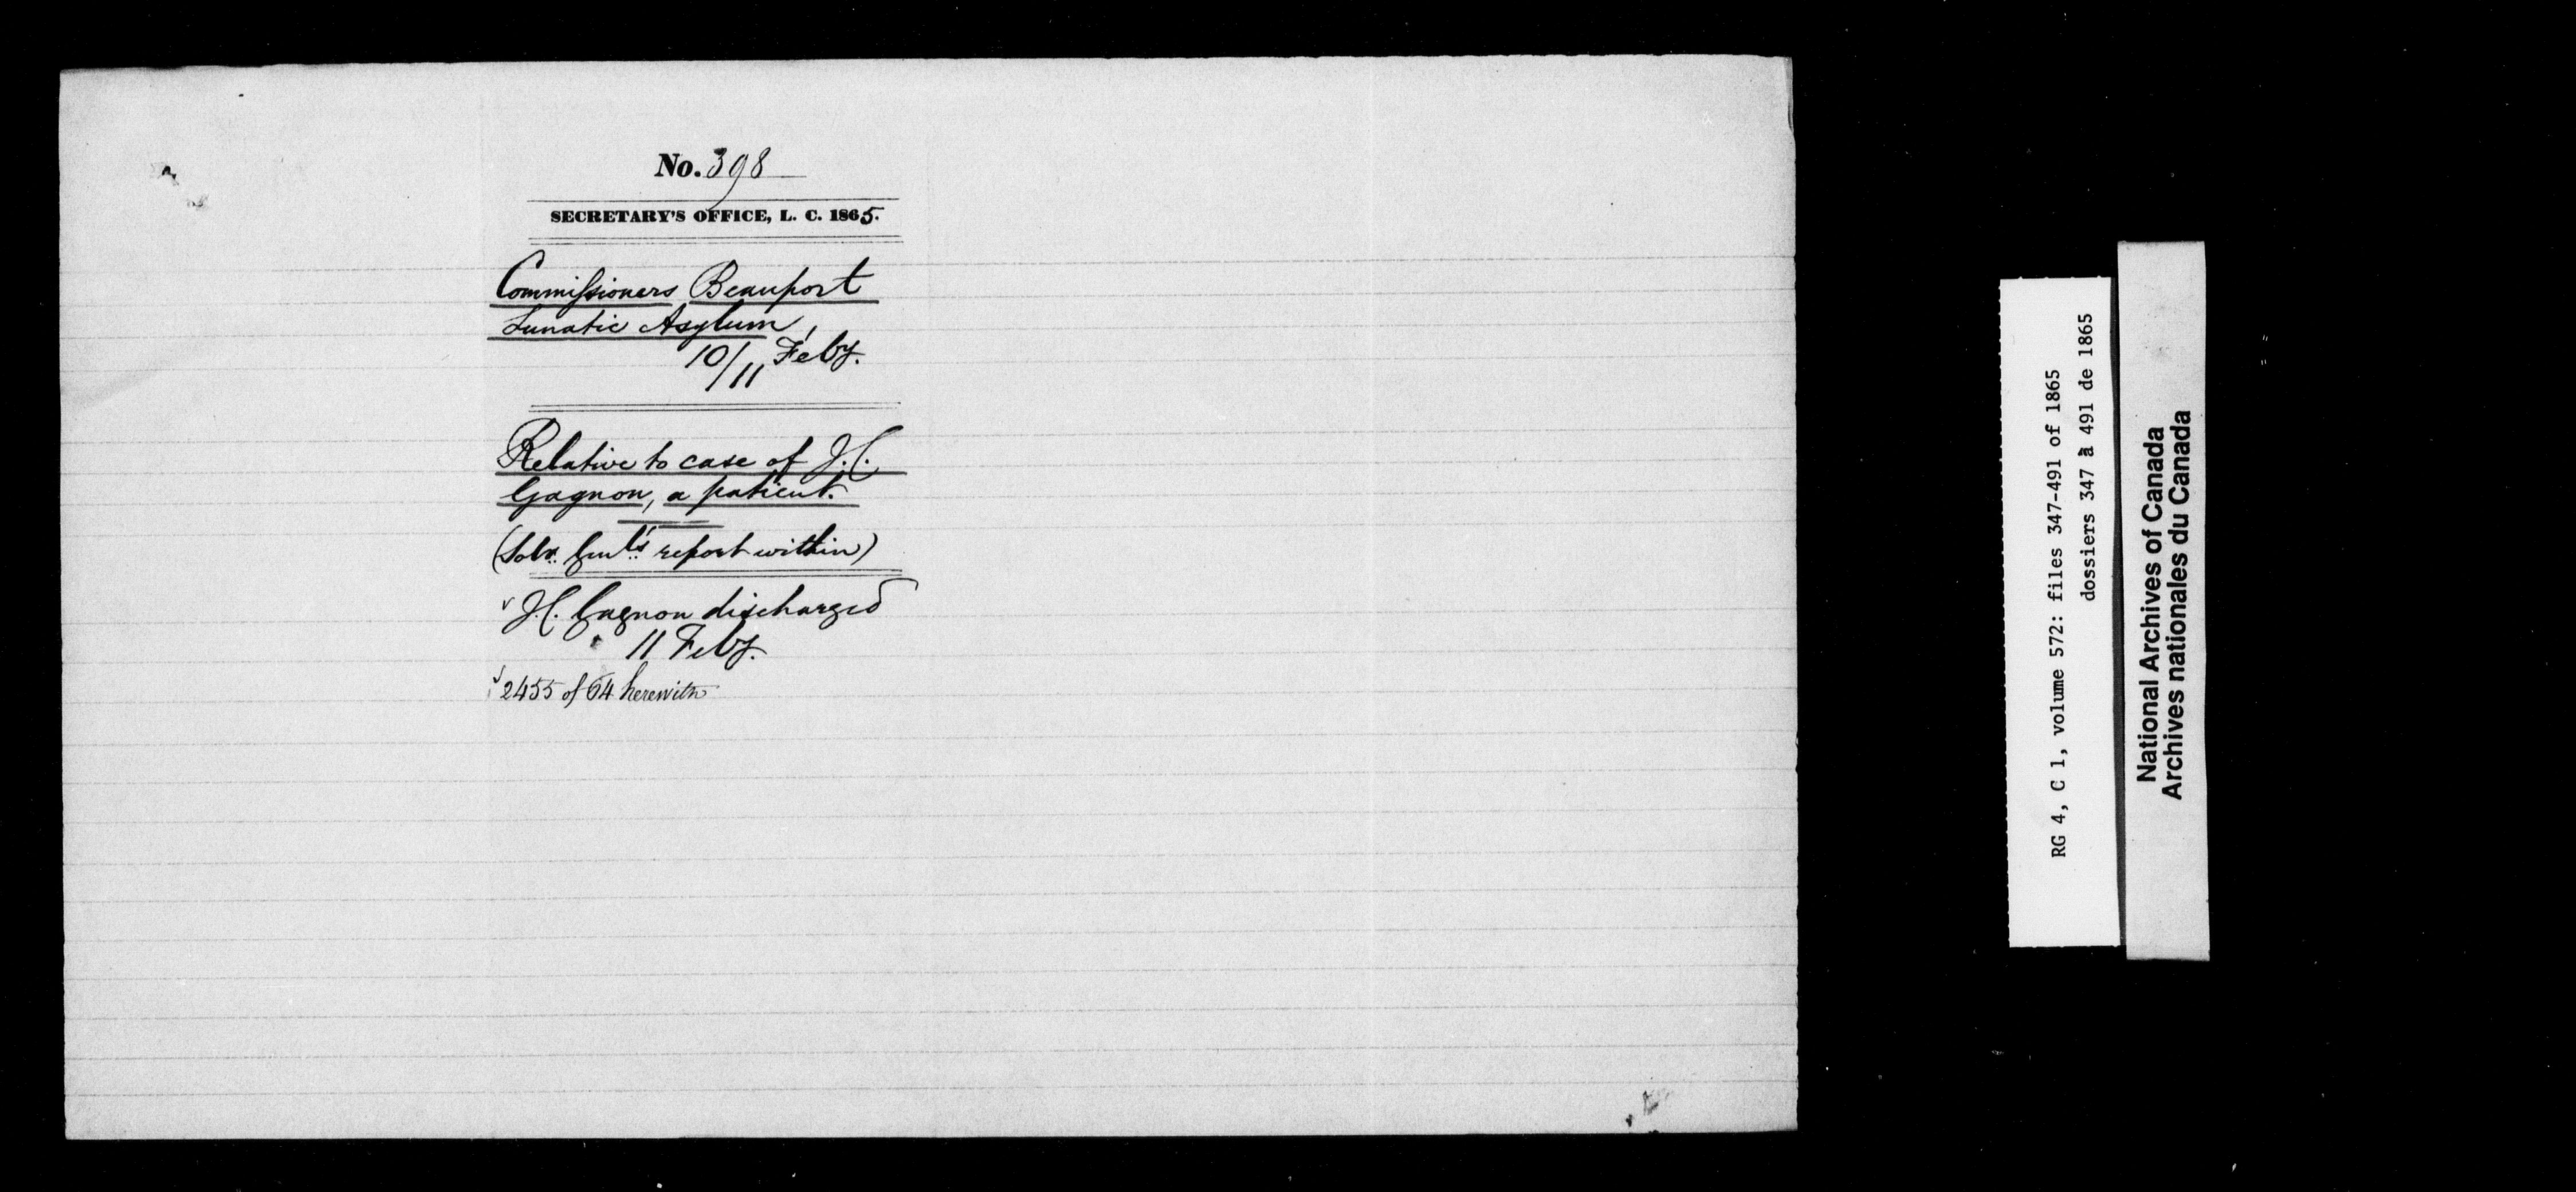 No. 398
SECRETARY'S OFFICE, L. C. 1865.
Commissioners Beauport
Lunatic Asylum,
10/11 Feby.
Relative to case of J.C.
Gagnon, a patient.
(Solr. Genl's report within)
J.C. Gagnon discharged
11 Feby.
2455 of 64 herewith
RG 4, C 1, volume 572: files 347-491 of 1865
dossiers 347 à 491 de 1865
National Archives of Canada
Archives nationales du Canada